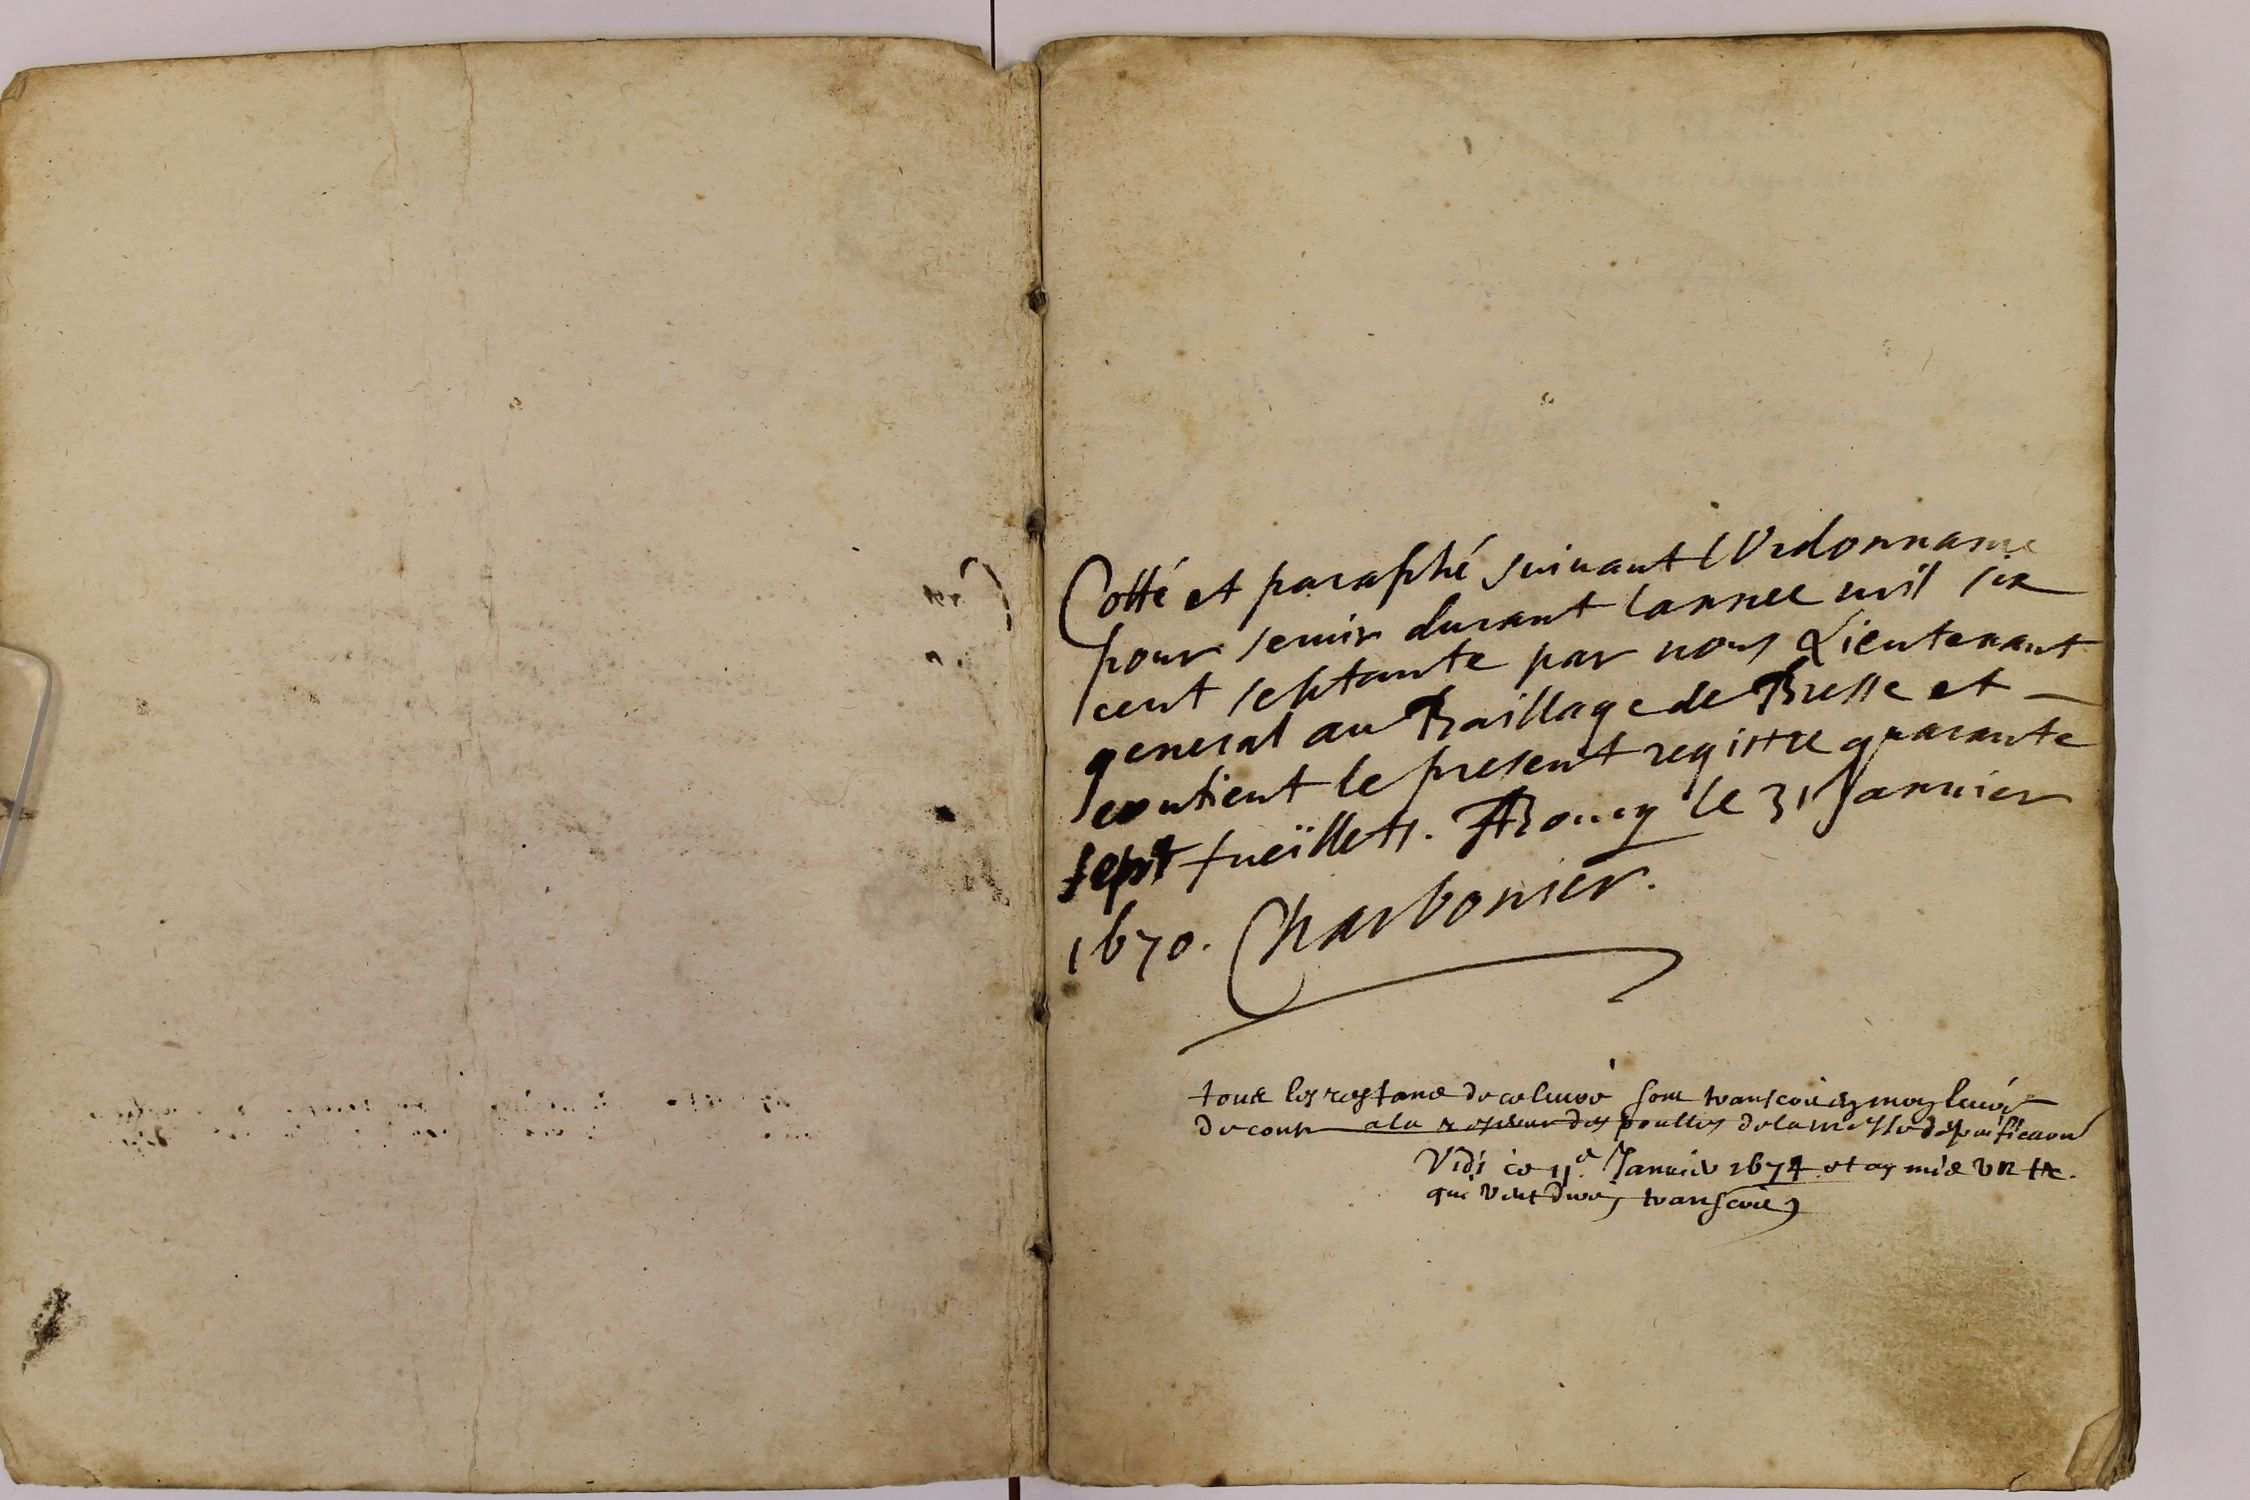 Cotté et paraphé suivant l'Ordonnance
pour servir durant lannee mil six
cent septante par nous Lieutenant
general au Baillage de Bresse et
contient le present registre quarante
sept fueïllets. A Bourg le 31 Januier
1670. Charbonier.
tous les restans de ce livre sont transcris
de cour a la des de la
Vidi ce 11e Januier 1674 et ay mis Vn tr.
qui veut dire, transcris